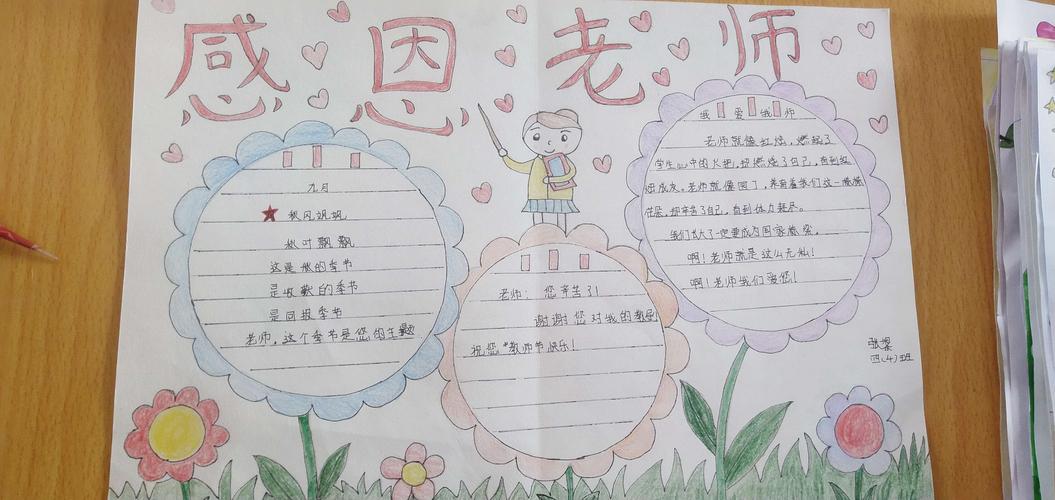 感恩老师
九月
秋风飒飒
秋叶飘飘
这是秋的季节
是收歌的季节
是回报季节
老师，这个季节是您的主题
老师：您辛苦了！
谢谢您对我的教导
祝您"教师节快乐！
我爱我师
老师就像红烛，燃起了
学生心中的火把，却燃烧了自己，直到红
烛成灰。老师就像园丁，养育着我们这一棵棵
花朵，却辛苦了自己，直到体力耗尽。
我们长大了一定要成为国家栋梁。
啊！老师就是这么无私！
啊！老师我们爱您！
张
四（4）班